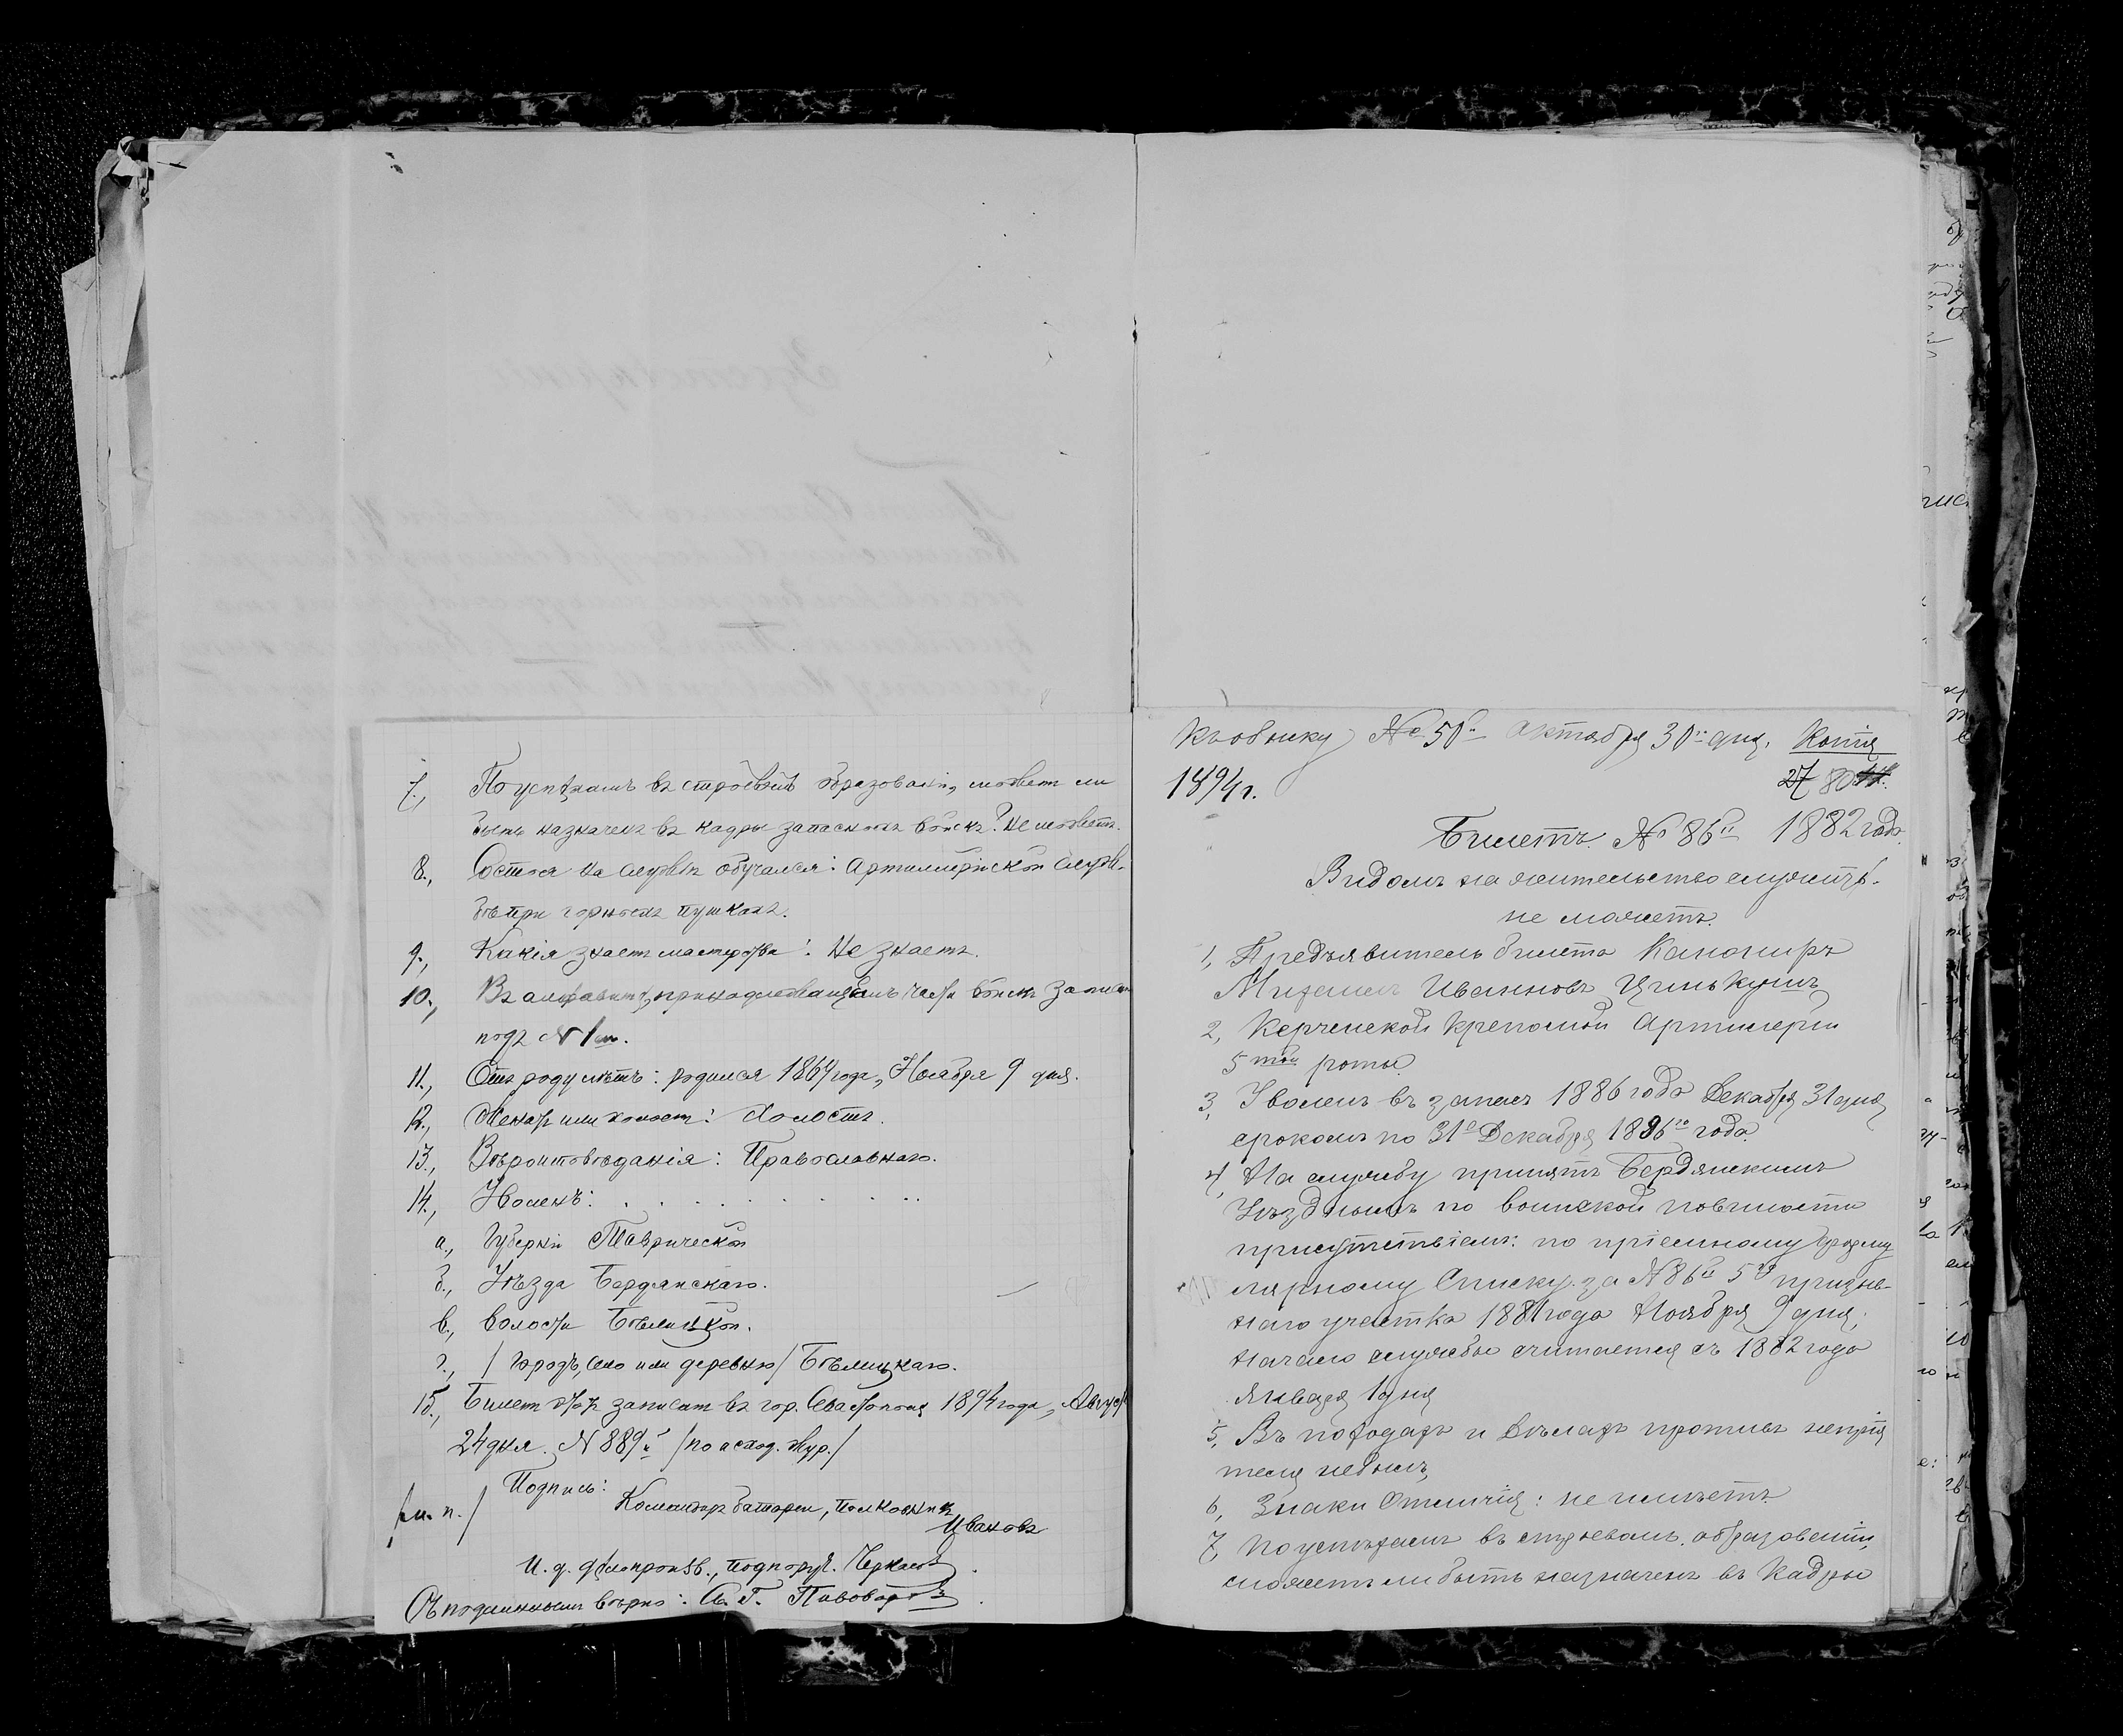 7., По успѣхамъ въ строевомъ образованіи, можетъ ли
быть назначенъ въ кадры запасныхъ войскъ? Не можетъ.
8., Состоя на службѣ обучался: Артиллерійской служ-
бѣ при горныхъ пушкахъ.
9., Какія знаетъ мастерства: Не знаетъ.
10., Въ алфавитъ, принадлежащій части войскъ записанъ
подъ № 1м.
11., Отъ роду лѣтъ: родился 1864 года, Ноября 9 дня.
12., Женатъ или холостъ: Холостъ.
13., Вѣроисповѣданія: Православнаго.
14., Уволенъ: . . . . . . . . .
а., Губерніи Таврической
б., Уѣзда Бердянскаго.
в., Волости Бѣлицкой.
г., /Городъ, село или деревню/ Бѣлицкаго.
15., Билетъ этотъ записанъ въ гор. Севастополя 1894 года, Август
24 дня. № 889й /по исход. жур./
/м. п./ Подпись:
Командиръ батареи, Полковникъ
Ивановъ
И. д. дѣлопроизв., подпоруч.
Съ подлиннымъ вѣрно:
№ 50й Октября 30 дня. Копія
1894 г. 27 80
Билетъ № 86й 1882 года.
Видомъ на жительство служить
не можетъ.
1, Предъявитель билета Канониръ
Михаилъ Ивановъ Цинькушъ
2, Керченской Крепостной Артилеріи
5той роты.
3, Уволенъ въ запасъ 1886 года Декабря 31 дня,
срокомъ по 31е Декабря 1896го года.
4, На службу принятъ Бердянскимъ
Уѣзднымъ по воинской повинности
присутствіемъ: по пріемному форму
лярному Списку за № 86й 5го призыв-
наго участка 1881 года Ноября 9 дня;
начало службы считается съ 1882 года
Января 1 дня
5, Въ походахъ и дѣлахъ противъ непрія
теля небылъ,
6, Знаки Отличія: не имѣетъ.
7, По успѣхамъ въ строевомъ образованіи,
можетъ ли быть назначенъ въ Кадры